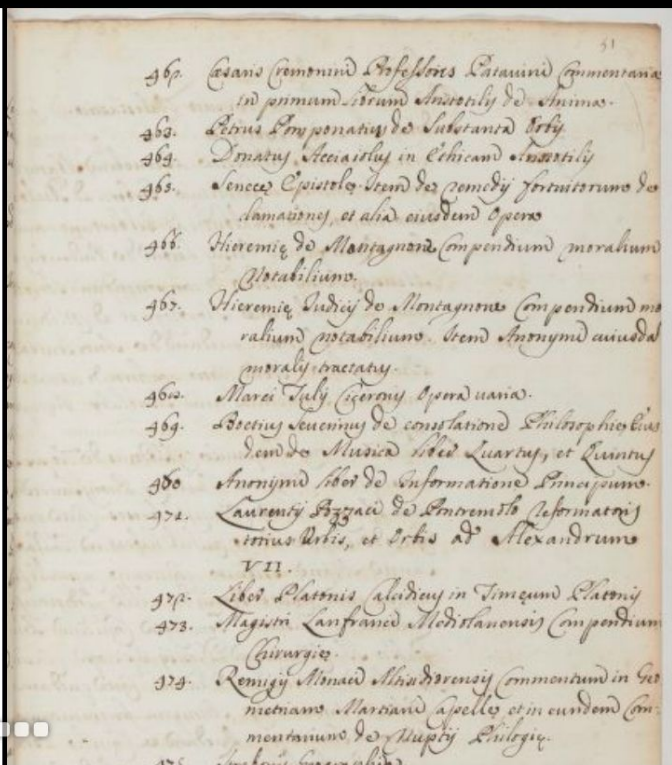 51
462. Cæsaris Cremonini Professoris Patavini Commentaria
in primum librum Aristotilis de Anima.
463. Petrus Pomponatius de Substantia Orbis
464. Donatus Acciaiolus in Ethicam Aristotilis
465. Senecę Epistolę. Item de remedijs fortuitorum de
clamationes, et alia eiusdem Opera
466. Hieremię de Montagnone Compendium moralium
Notabilium.
467. Hieremię Iudicis de Montagnone Compendium mo
ralium notabilium. Item Anonymi cuiusdā
moralis tractatus.
468. Marci Tulij Ciceronis Opera varia.
469. Boetius Severinus de consolatione Philosophię, Eius
dem de Musica liber Quartus, et Quintus
Anonymi liber de Informatione Principum.
471. Laurentij de Pontremolo Reformatoris
totius Urbis, et Orbis ad Alexandrum
VII.
472. Liber Platonis Calcidicus in Timęum Platonis
473. Magistri Lanfranci Mediolanensis Compendium
Chirurgię.
474. Remigij Monaci Commentum in Geo
metriam Martiani Capellę, et in eundem Com-
mentarium de Nuptijs Philogię.
475.